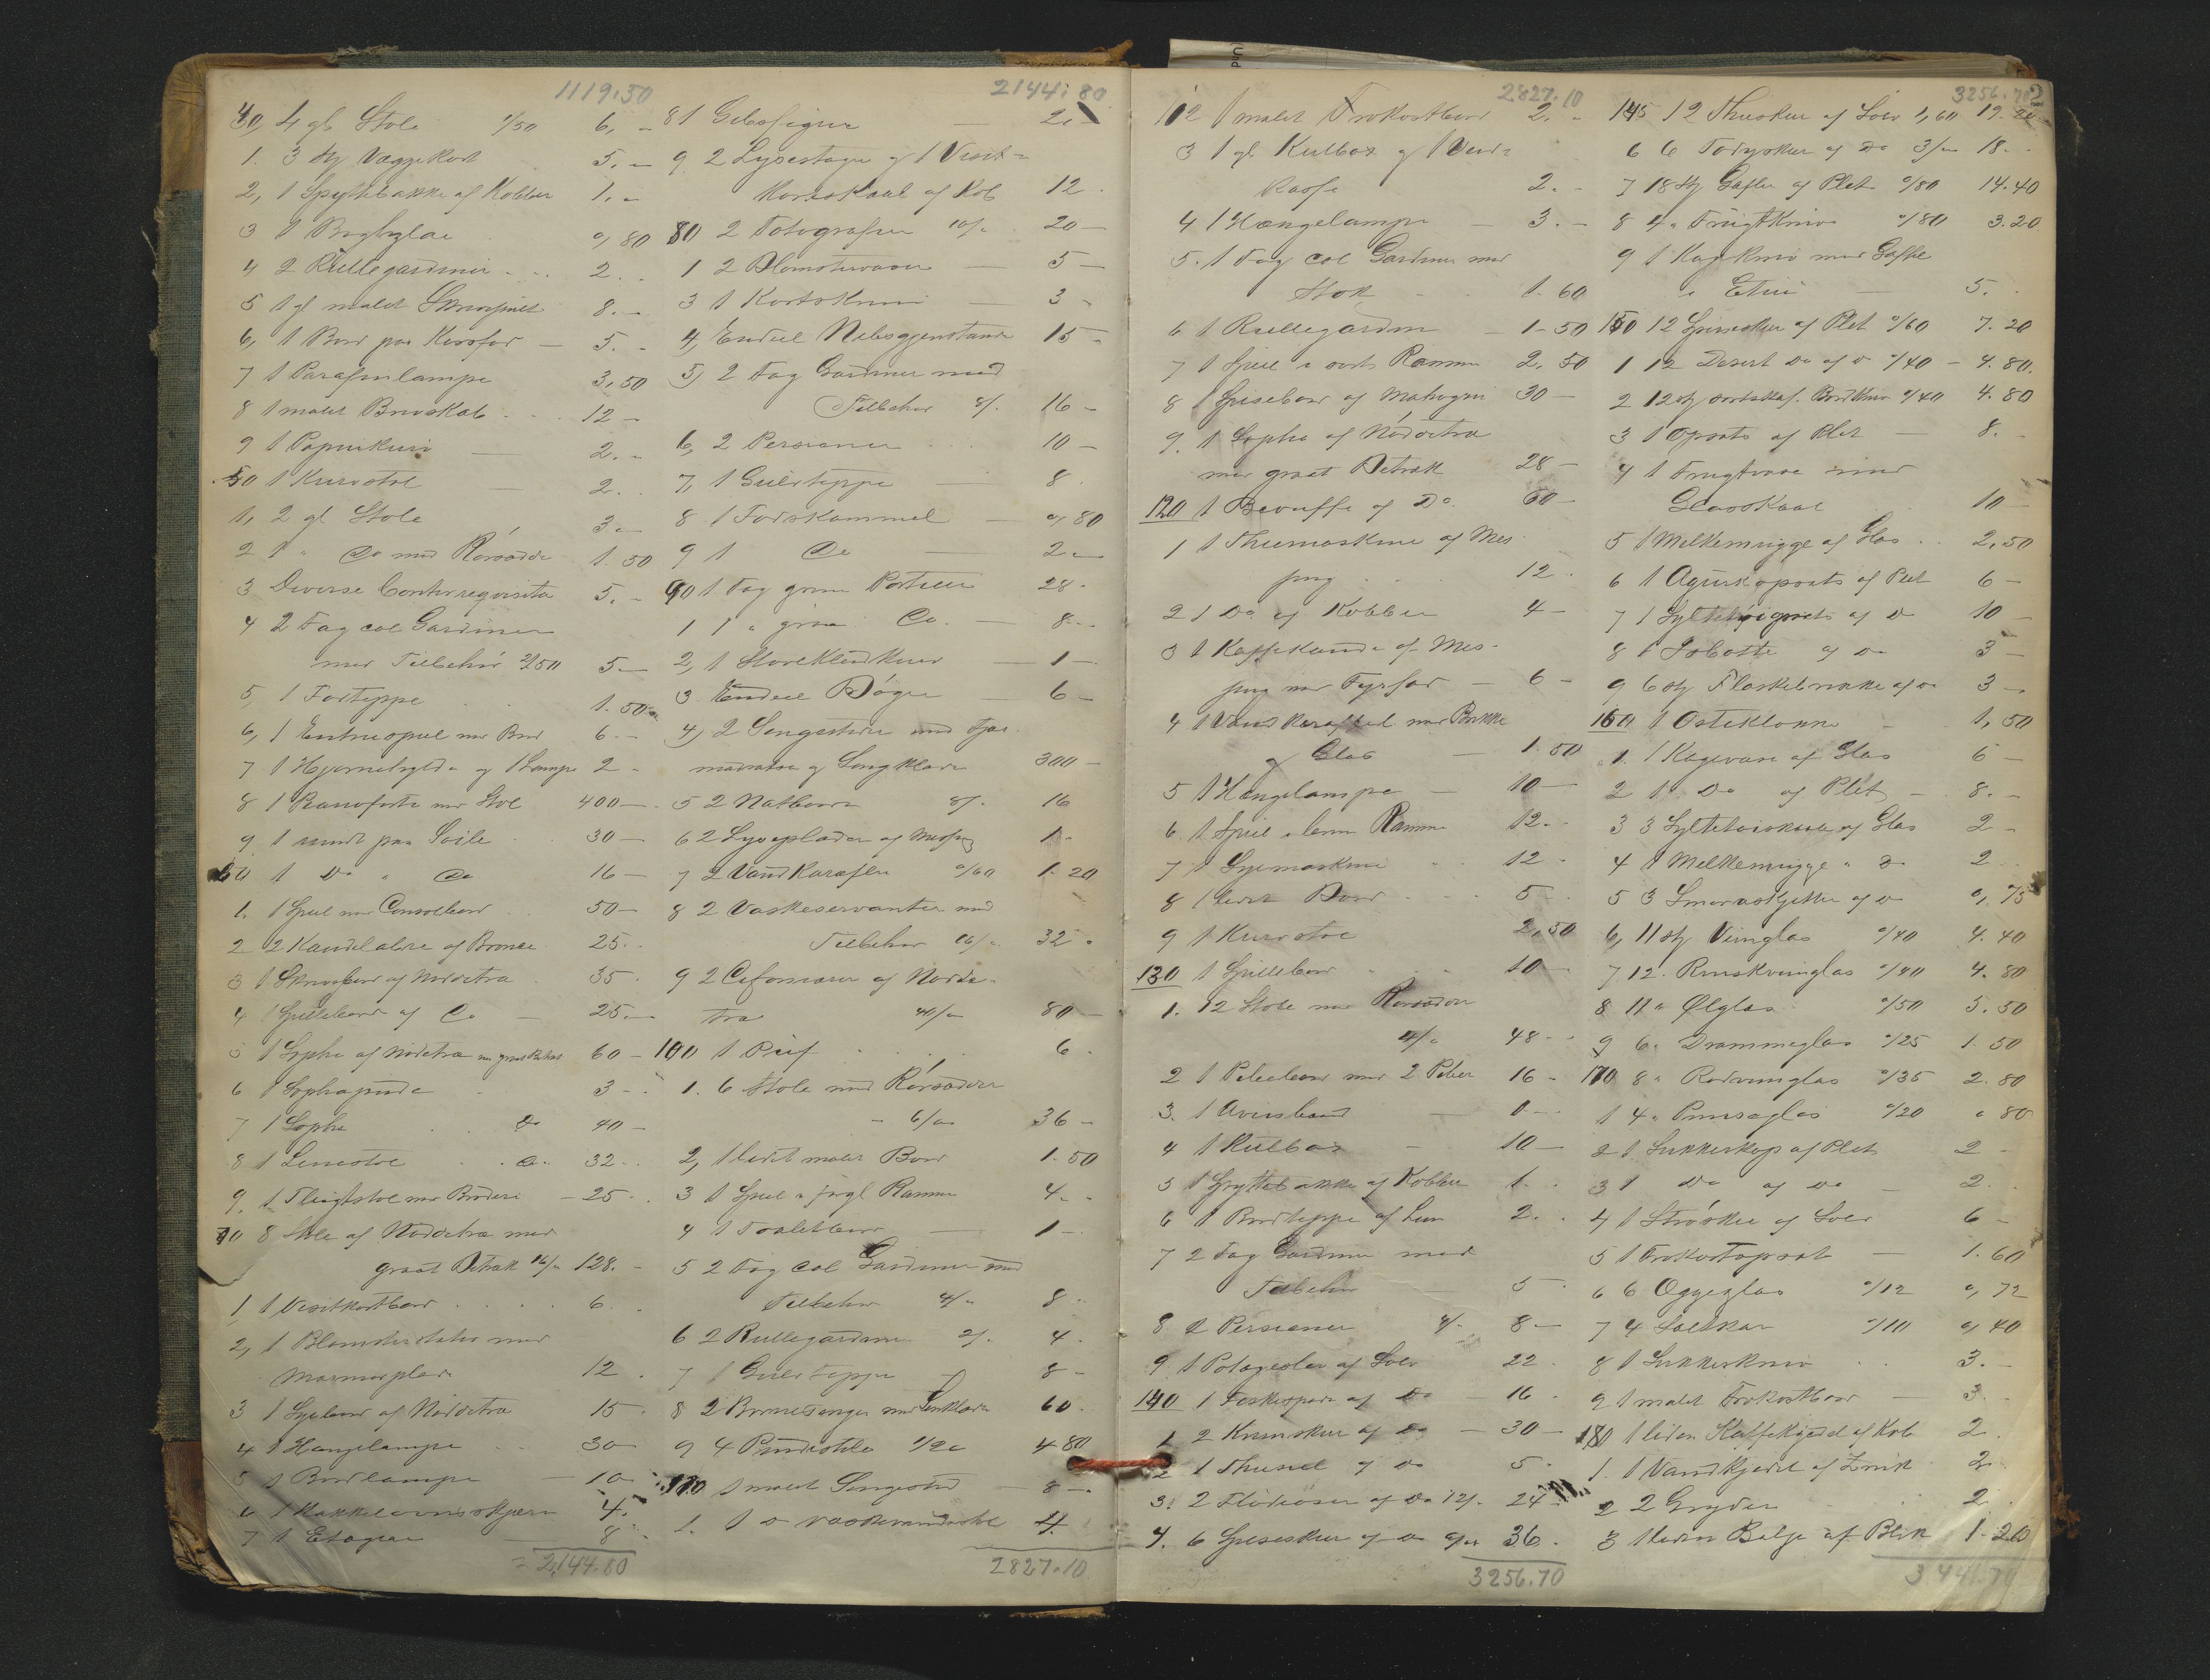 1119.50
40, 4 gl. Stole 1/50 6, -
1. 3 st Vægge Kort 5. -
2, 1 Spyttebakke af Kobber 1. -
3 1 Boghylde 0,80
4 2 Rullegardiner 2. -
5 1 gl malet Skrivepult 8. -
6, 1 Bord paa Krosfod 5. -
7 1 Parafinlampe 3,50
8 1 malet Brevskab 12 -
9 1 Papirkurv 2. -
50 1 Kurvstol 2.
1, 2 gl Stole 3. -
2 1 " Do med Rørsæde 1.50
3 Diverse Contorrequisita 5. -
4 2 Fag col Gardiner
med Tilbehør 2/50 5. -
5, 1 Forteppe 1.50
6, 1 Entreespeil med Bord 6. -
7 1 Hjørnehylde og 1 Lampe 2 -
8 1 Pianoforte med Stol 400 -
9 1 rundt paa Søile 30 -
60 1 Do " Do 16 -
1. 1 Speil med Consolbord 50 -
2 2 Kandelabre af Bronce 25. -
3 1 Skrivebord af Nøddetræ 35 -
4 1 Spillebord af Do 25. -
5 1 Sopha af Nøddetræ m graat Betræk 60 -
6 1 Sophapude 3 -
7 1 Sopha Do 40 -
8 1 Lænestol Do 32. -
9. 1 Flugtstol med Broderi 25 -
70 8 Stole af Nøddetræ med
graat Betræk 16/- 128. -
1, 1 Visitkortbord 6.
2, 1 Blomsterstativ med
Marmorplade 12.
3 1 Sybord af Nøddetræ 15 -
4 1 Hængelampe 30 -
5 1 Bordlampe 10 -
6 1 Kakkelovnsskjærm 4.
7 1 Etagere 8 -
= 2,144.80
2144.80
81 Gibsfigur 2. -
9 2 Lysestager og 1 Visit-
Kortskaal af Kob 12.
80 2 Fotografier 10/- 20 -
1 2 Blomstervaser 5 -
3 1 Kortskrin 3 -
4, Endeel Nibsgjenstande 15 -
5, 2 Fag Gardiner med
Tilbehør 8/- 16 -
6, 2 Persienner 10 -
7, 1 Gulvteppe 8.
8 1 Fodskammel 0,80
9 1 Do 2. -
90 1 Fag grøn Portiere 28 -
1 1 " grøn Do. 8. -
2, 1 StoreKlædkurv 1 -
3 Endeel Bøger 6 -
4, 2 Sengesteder med Fjær
madratser og Sengklæder 300 -
5 2 Natborde 8/- 16
6 2 Lyseplader af Messing 1. -
7 2 VandKarafler 0/60 1.20
8 2 Vaskeservanter med
Tilbehør 16/- 32 -
9 2 Cifonierer af Nødde-
træ 40/- 80 -
100 1 Puf 6.
1. 6 Stole med Rørsæder
6/- 36 -
2, 1 lidet malet Bord 1.50
3 1 Speil i forgl Ramme 4. -
4 1 Toiletbord 1 -
5 2 Fag Col Gardiner med
Tilbehør 4/- 8 -
6 2 Rullegardiner 2/- 4.
7 1 Gulvteppe 8 -
8 2 Bronesenger med Senklæder 60.
9 4 Pindestole 1/20 4 80
110 1 malet Sengested 8 -
1. 1 Do Vaskevandsstol 4.
2827.10
2827.10
112 1 malet Frokostbord 2. -
3 1 gl. Kulbox og 1 Ved-
kasse 2. -
4 1 Hængelampe 3. -
5. 1 Fag col Gardiner med
Stok 1.60
6 1 Rullegardin 1.50
7 1 Speil i sort Ramme 2,50
8 1 Spisebord af Mahogni 30 -
9. 1 Sopha af Nøddetræ
med graat Betræk 28 -
120 1 Bouffe af Do. 60 -
1 1 Themaskine af Mes-
sing 12 -
2 1 Do. af Kobber 4 -
3 1 Kaffekande af Mes-
sing med Fyrfad 6 -
4 1 VandKaraffel med Bakke
og Glas 1.50
5 1 Hængelampe 10 -
6 1 Speil i brun Ramme 12. -
7 1 Symaskine 12 -
8 1 lidet Bord 5 -
9 1 Kurvstol 2,50
130 1 Spillebord 10 -
1. 12 Stole med Rørsæder
4/- 48 -
2 1 Pibebord med 2 Piber 16 -
3. 1 Avisbord 1 -
4 1 Kulbox 10 -
5 1 Spyttebakke af Kobber 1. -
6 1 Bordteppe af Lin 2. -
7 2 Fag Gardiner med
Tilbehør 5 -
8 2 Persienner 4/- 8 -
9. 1 Potageske af Sølv 22 -
140 1 Fiskespade af Do 16 -
1 2 Kremskeer af Do 30 -
2 1 Thesiel af Do 5 -
3. 2 Flødeøser af Do 12/- 24 -
4. 6 Spiseskeer af Do 6/- 36.
3256.70
3256.70 2
145 12 Theskeer af Sølv 1,60 19.20
6 6 Do 3/- 18. -
7 18 st Gafler af Plet 0/80 14.40
8 4 " Frugtknive 0/80 3.20
9 1 Kagekniv med Gaffel
i Etui 5.
150 12 Spiseskeer af Plet 0/60 7.20
1 12 Desert Do af Do 0/40 4.80.
2 12 st sortskaf. Bordkniv 0/40 4.80
3 1 Opsats af Plet 8. -
4 1 Frugtvase med
Glasskaal 10 -
5 1 Melkemugge af Glas 2,50
6 1 Agurkopsats af Plet 6 -
7 1 Syltetøiopsats af Do 10 -
8 1 Isbøtte af Do 3 -
9 6 st Flaskebrikke af Do 3 -
160 1 Osteklokke 1,50
1. 1 Kagevase af Glas 6 -
2 1 Do af Plet 8. -
3 3 Syltetøiskaale af Glas 2 -
4 1 Melkemugge " Do 2
5 3 Smørasjetter af Do 0,75
6, 11 st Vinglas 0/40 4.40
7 12 " Rinskvinglas 0/40 4.80
8 11 " Ølglas 0/50 5.50
9 6 " Drammeglas 0/25 1.50
170 8 " Rødvinglas 0/35 2.80
1 4 " Punseglas 0/20 0 80
2 1 Sukkerkop af Plet 2 -
3 1 Do af Do 2. -
4 1 Strøske af Sølv 6 -
5 1 Frokostopsats 1.60
6 6 Eggeglas 0/12 0,72
7 4 Saltkar 0/10 0,40
8 1 Sukkerkniv 3. -
9 1 malet Frokostbord 3. -
180 1 liden Kaffekjedel af Kob 2.
1. 1 Vandkjedel af Zink 2
2 2 Gryder 2.
3 1 liden Balje af Blik 1.20